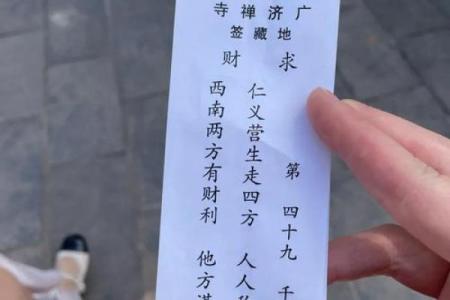 广济禅寺
地藏签
求财
第四十九 千
仁义营生走四方 人人
西南两方有财利 他方